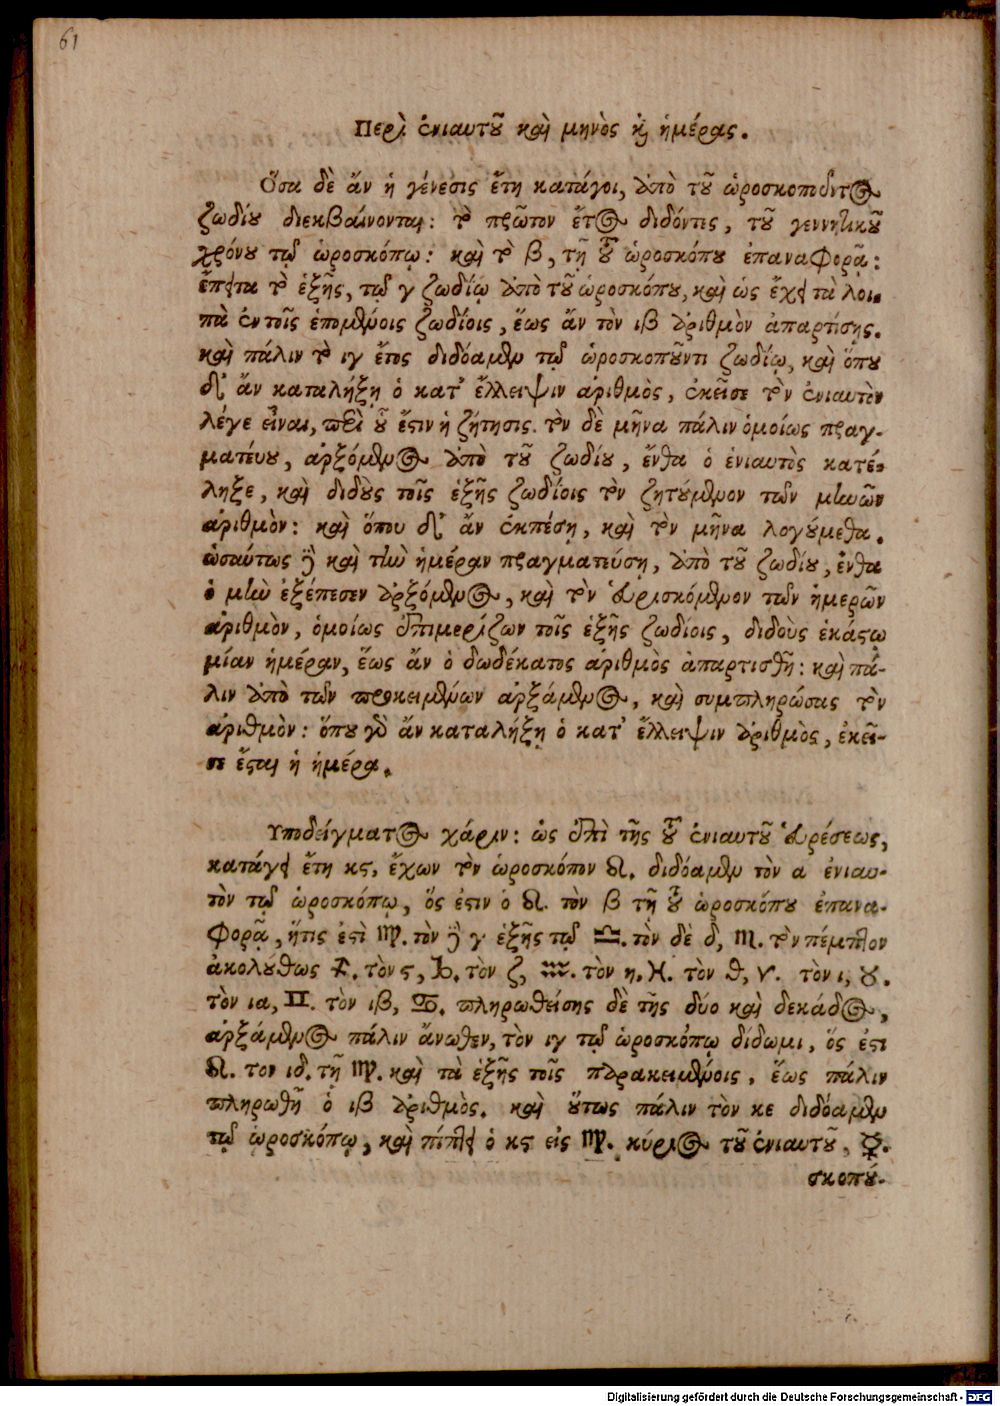 61
Περὶ ἐνιαυτοῦ καὶ μηνὸς καὶ ἡμέρας.
Ὅσα δὲ ἄν ἡ γένεσις ἔτη κατάγοι, ἀπὸ τοῦ ὡροσκοποῦντος
ζωδίου διεκβαίνονται: τὸ πρῶτον ἔτος διδόντες, τοῦ γεννητικοῦ
χρόνου τῷ ὡροσκόπῳ: καὶ τὸ β, τῇ τοῦ ὡροσκόπου ἐπαναφορᾷ:
ἔπειτα τὸ ἑξῆς, τῷ γ ζωδίῳ ἀπὸ τοῦ ὡροσκόπου, καὶ ὡς ἔχει τὰ λοι-
πὰ ἐν τοῖς ἑπομένοις ζωδίοις, ἕως ἄν τὸν ιβ ἀριθμὸν ἀπαρτίσῃς.
καὶ πάλιν τὸ ιγ ἔτος διδόαμεν τῷ ὡροσκοποῦντι ζωδίῳ, καὶ ὅπου
δ' ἄν καταλήξῃ ὁ κατ' ἔλλειψιν ἀριθμὸς, ἐκεῖσε τὸν ἐνιαυτὸν
λέγε εἶναι, περὶ οὗ ἔστιν ἡ ζήτησις. τὸν δὲ μῆνα πάλιν ὁμοίως πραγ-
ματεύου, ἀρξόμενος ἀπὸ τοῦ ζωδίου, ἔνθα ὁ ἐνιαυτὸς κατέ-
ληξε, καὶ διδοὺς τοῖς ἑξῆς ζωδίοις τὸν ζητούμενον τῶν μηνῶν
ἀριθμὸν: καὶ ὅπου δ' ἄν ἐκπέσῃ, καὶ τὸν μῆνα λογούμεθα.
ὡσαύτως δὲ καὶ τὴν ἡμέραν πραγματεύσῃ, ἀπὸ τοῦ ζωδίου, ἔνθα
ὁ μὴν ἐξέπεσεν ἀρξόμενος, καὶ τὸν εὑρισκόμενον τῶν ἡμερῶν
ἀριθμὸν, ὁμοίως ἐπιμερίζων τοῖς ἑξῆς ζωδίοις, διδοὺς ἑκάστῳ
μίαν ἡμέραν, ἕως ἄν ὁ δωδέκατος ἀριθμὸς ἀπαρτισθῇ: καὶ πά-
λιν ἀπὸ τῶν προκειμένων ἀρξάμενος, καὶ συμπληρώσας τὸν
ἀριθμὸν: ὅπου γὰρ ἄν καταλήξῃ ὁ κατ' ἔλλειψιν ἀριθμὸς, ἐκεῖ-
σε ἔσται ἡ ἡμέρα.
Υποδείγματος χάριν: ὡς ἐπὶ τῆς τοῦ ἐνιαυτοῦ εὑρέσεως,
κατάγει ἔτη κϛ, ἔχων τὸν ὡροσκόπον ♌. διδόαμεν τὸν α ἐνιαυ-
τὸν τῷ ὡροσκόπῳ, ὅς ἐστιν ὁ ♌. τὸν β τῇ τοῦ ὡροσκόπου ἐπανα-
φορᾷ, ἥτις ἐστὶ ♍. τὸν δὲ γ ἑξῆς τῷ ♎. τὸν δὲ δ, ♏. τὸν πέμπτον
ἀκολούθως ♐. τὸν ϛ, ♑. τὸν ζ, ♒. τὸν η, ♓. τὸν θ, ♈. τὸν ι, ♉.
τὸν ια, ♊. τὸν ιβ, ♋. πληρωθείσης δὲ τῆς δύο καὶ δεκάδος,
ἀρξάμενος πάλιν ἄνωθεν, τὸν ιγ τῷ ὡροσκόπῳ δίδωμι, ὅς ἐστι
♌. τον ιδ. τῇ ♍. καὶ τὰ ἑξῆς τοῖς παρακειμένοις, ἕως πάλιν
πληρωθῇ ὁ ιβ ἀριθμὸς. καὶ οὕτως πάλιν τὸν κε διδόαμεν
τῷ ὡροσκόπῳ, καὶ πίπτει ὁ κϛ εἰς ♍. κύριος τοῦ ἐνιαυτοῦ, ☿.
σκοπού-
Digitalisierung gefördert durch die Deutsche Forschungsgemeinschaft - DFG